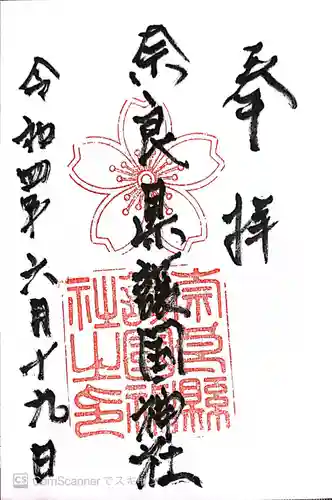 奉拝
奈良縣護國神社
奈良県護国神社
社之印
令和四年六月十九日
CS CamScannerでスキ